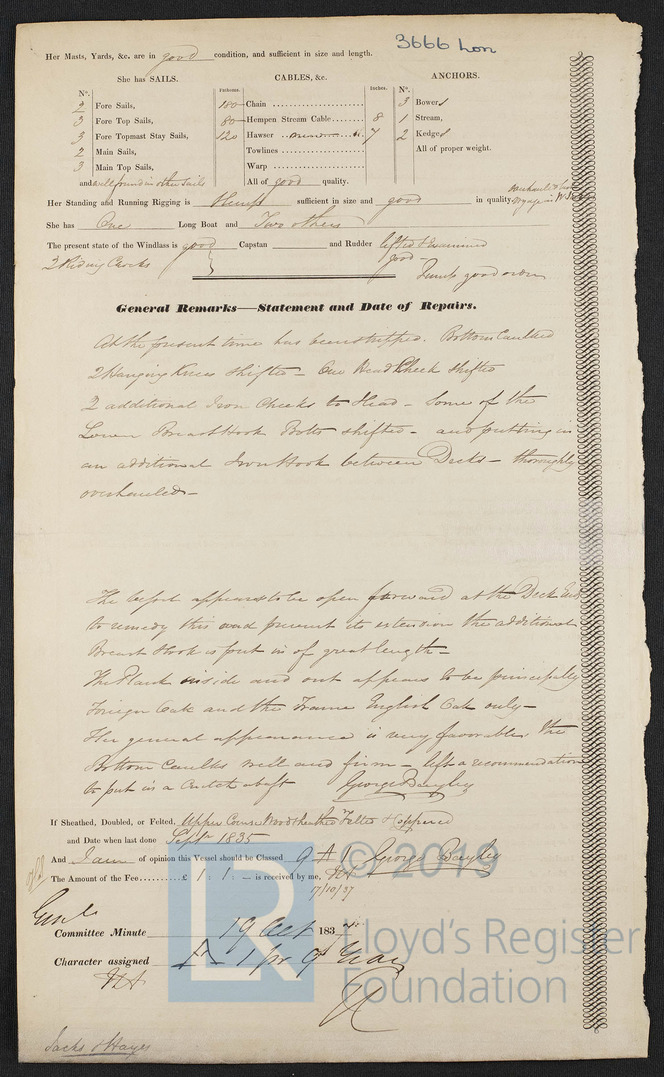 3666 Lon
Her Masts, Yards, &c. are in good condition, and sufficient in size and length.
She has SAILS. CABLES, &c. ANCHORS.
N°. Fathoms. Inches. N°.
2 Fore Sails, 100 Chain 3 Bowers
3 Fore Top Sails, 80 Hempen Stream Cable 8 1 Stream,
3 Fore Topmast Stay Sails, 120 Hawser 7 2 Kedges
2 Main Sails, Towlines All of proper weight.
3 Main Top Sails, Warp
and well found in other sails All of good quality.
Her Standing and Running Rigging is Hemp sufficient in size and good in quality.
She has One Long Boat and Two others
The present state of the Windlass is good Capstan and Rudder lifted & Examined
2 Riding Chocks good
Pumps good
General Remarks—Statement and Date of Repairs.
At the present time has been stripped. Bottom Caulked
2 Hanging Knees shifted – One Head Cheek shifted
2 additional Iron Cheeks to Head – Some of the
Lower Breast Hook Bolts shifted – and putting in
an additional Iron Hook between Decks – thoroughly
overhauled –
The appears to be open forward at the Deck End
to remedy this and prevent its extension the additional
Breast Hook is put in of great length –
The Plank inside and out appears to be principally
Foreign Oak and the Frame English Oak only –
Her general appearance is very favorable, the
Bottom Caulks well and firm – left a recommendation
to put in a Crutch abaft George Bayley
If Sheathed, Doubled, or Felted, Upper Course Wood sheathed Felted & Coppered
and Date when last done Septr 1835
And I am of opinion this Vessel should be Classed 9 A 1 George Bayley
The Amount of the Fee £ 1 : 1 : – is received by me,
17/10/37
Committee Minute 19 Oct 1837
Character assigned 1 for 9 Years
Jacks & Hayes
© 2019
LR
Lloyd's Register
Foundation